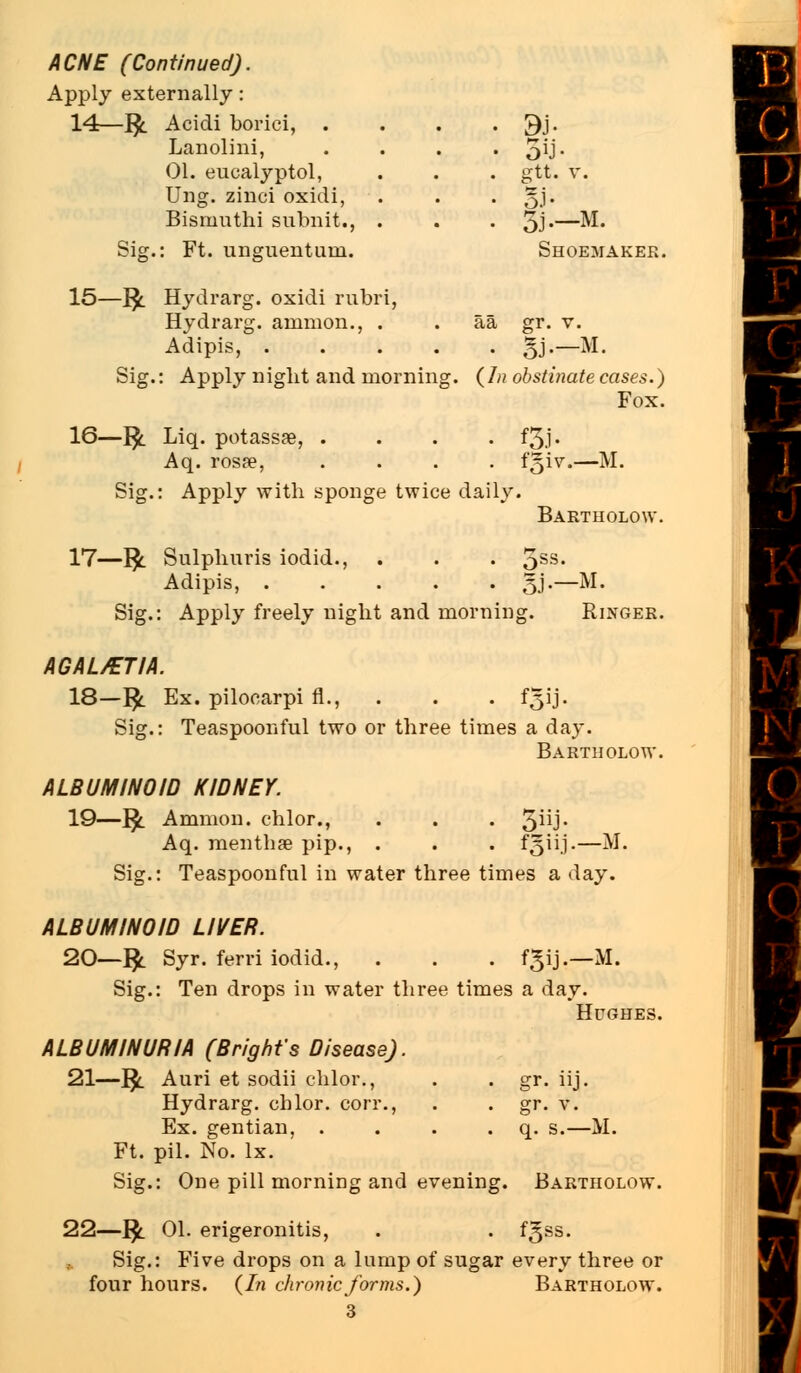 ACNE (Continued).
Apply externally:
14—℞ Acidi borici, . . . . ℈j.
Lanolini, . . . . ʒij.
Ol. eucalyptol, . . . gtt. v.
Ung. zinci oxidi, . . . ℥j.
Bismuthi subnit., . . . ʒj.—M.
Sig.: Ft. unguentum. SHOEMAKER.
15—℞ Hydrarg. oxidi rubri,
Hydrarg. ammon., . . āā gr. v.
Adipis, . . . . . ℥j.—M.
Sig.: Apply night and morning. (In obstinate cases.)
FOX.
16—℞ Liq. potassæ, . . . . fʒj.
Aq. rosæ, . . . . f℥iv.—M.
Sig.: Apply with sponge twice daily.
BARTHOLOW.
17—℞ Sulphuris iodid., . . . ʒss.
Adipis, . . . . . ℥j.—M.
Sig.: Apply freely night and morning. RINGER.
AGALÆTIA.
18—℞ Ex. pilocarpi fl., . . . f℥ij.
Sig.: Teaspoonful two or three times a day.
BARTHOLOW.
ALBUMINOID KIDNEY.
19—℞ Ammon. chlor., . . . ʒiij.
Aq. menthæ pip., . . . f℥iij.—M.
Sig.: Teaspoonful in water three times a day.
ALBUMINOID LIVER.
20—℞ Syr. ferri iodid., . . . f℥ij.—M.
Sig.: Ten drops in water three times a day.
HUGHES.
ALBUMINURIA (Bright's Disease).
21—℞ Auri et sodii chlor., . . gr. iij.
Hydrarg. chlor. corr., . . gr. v.
Ex. gentian, . . . . q. s.—M.
Ft. pil. No. lx.
Sig.: One pill morning and evening. BARTHOLOW.
22—℞ Ol. erigeronitis, . . f℥ss.
Sig.: Five drops on a lump of sugar every three or
four hours. (In chronic forms.) BARTHOLOW.
3
B
C
D
E
F
G
H
I
J
K
L
M
N
O
P
Q
R
S
T
U
V
W
X